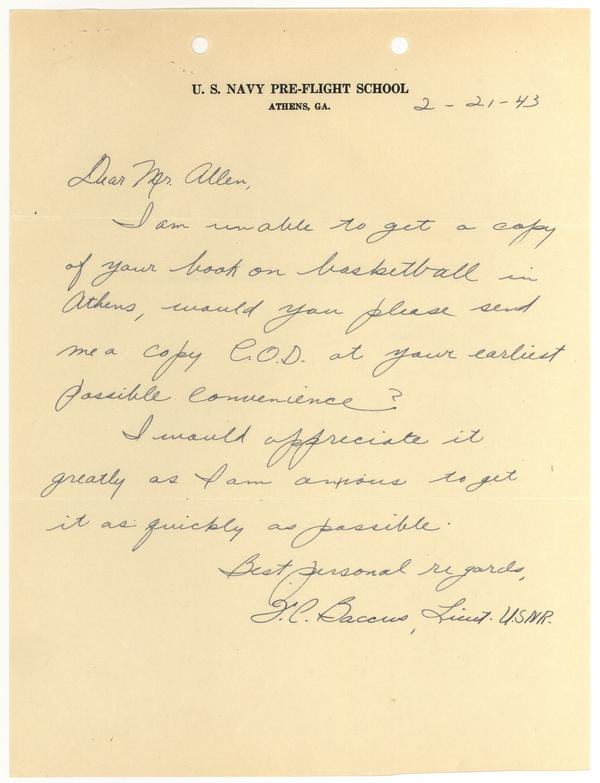 U. S. NAVY PRE-FLIGHT SCHOOL
ATHENS, GA.
2-21-43
Dear Mr. Allen,
I am unable to get a copy
of your book on basketball in
Athens, would you please send
me a copy C.O.D. at your earliest
possible convenience?
I would appreciate it
greatly as I am anxious to get
it as quickly as possible.
Best personal regards,
F.C. Baccus, Lieut. USNR.